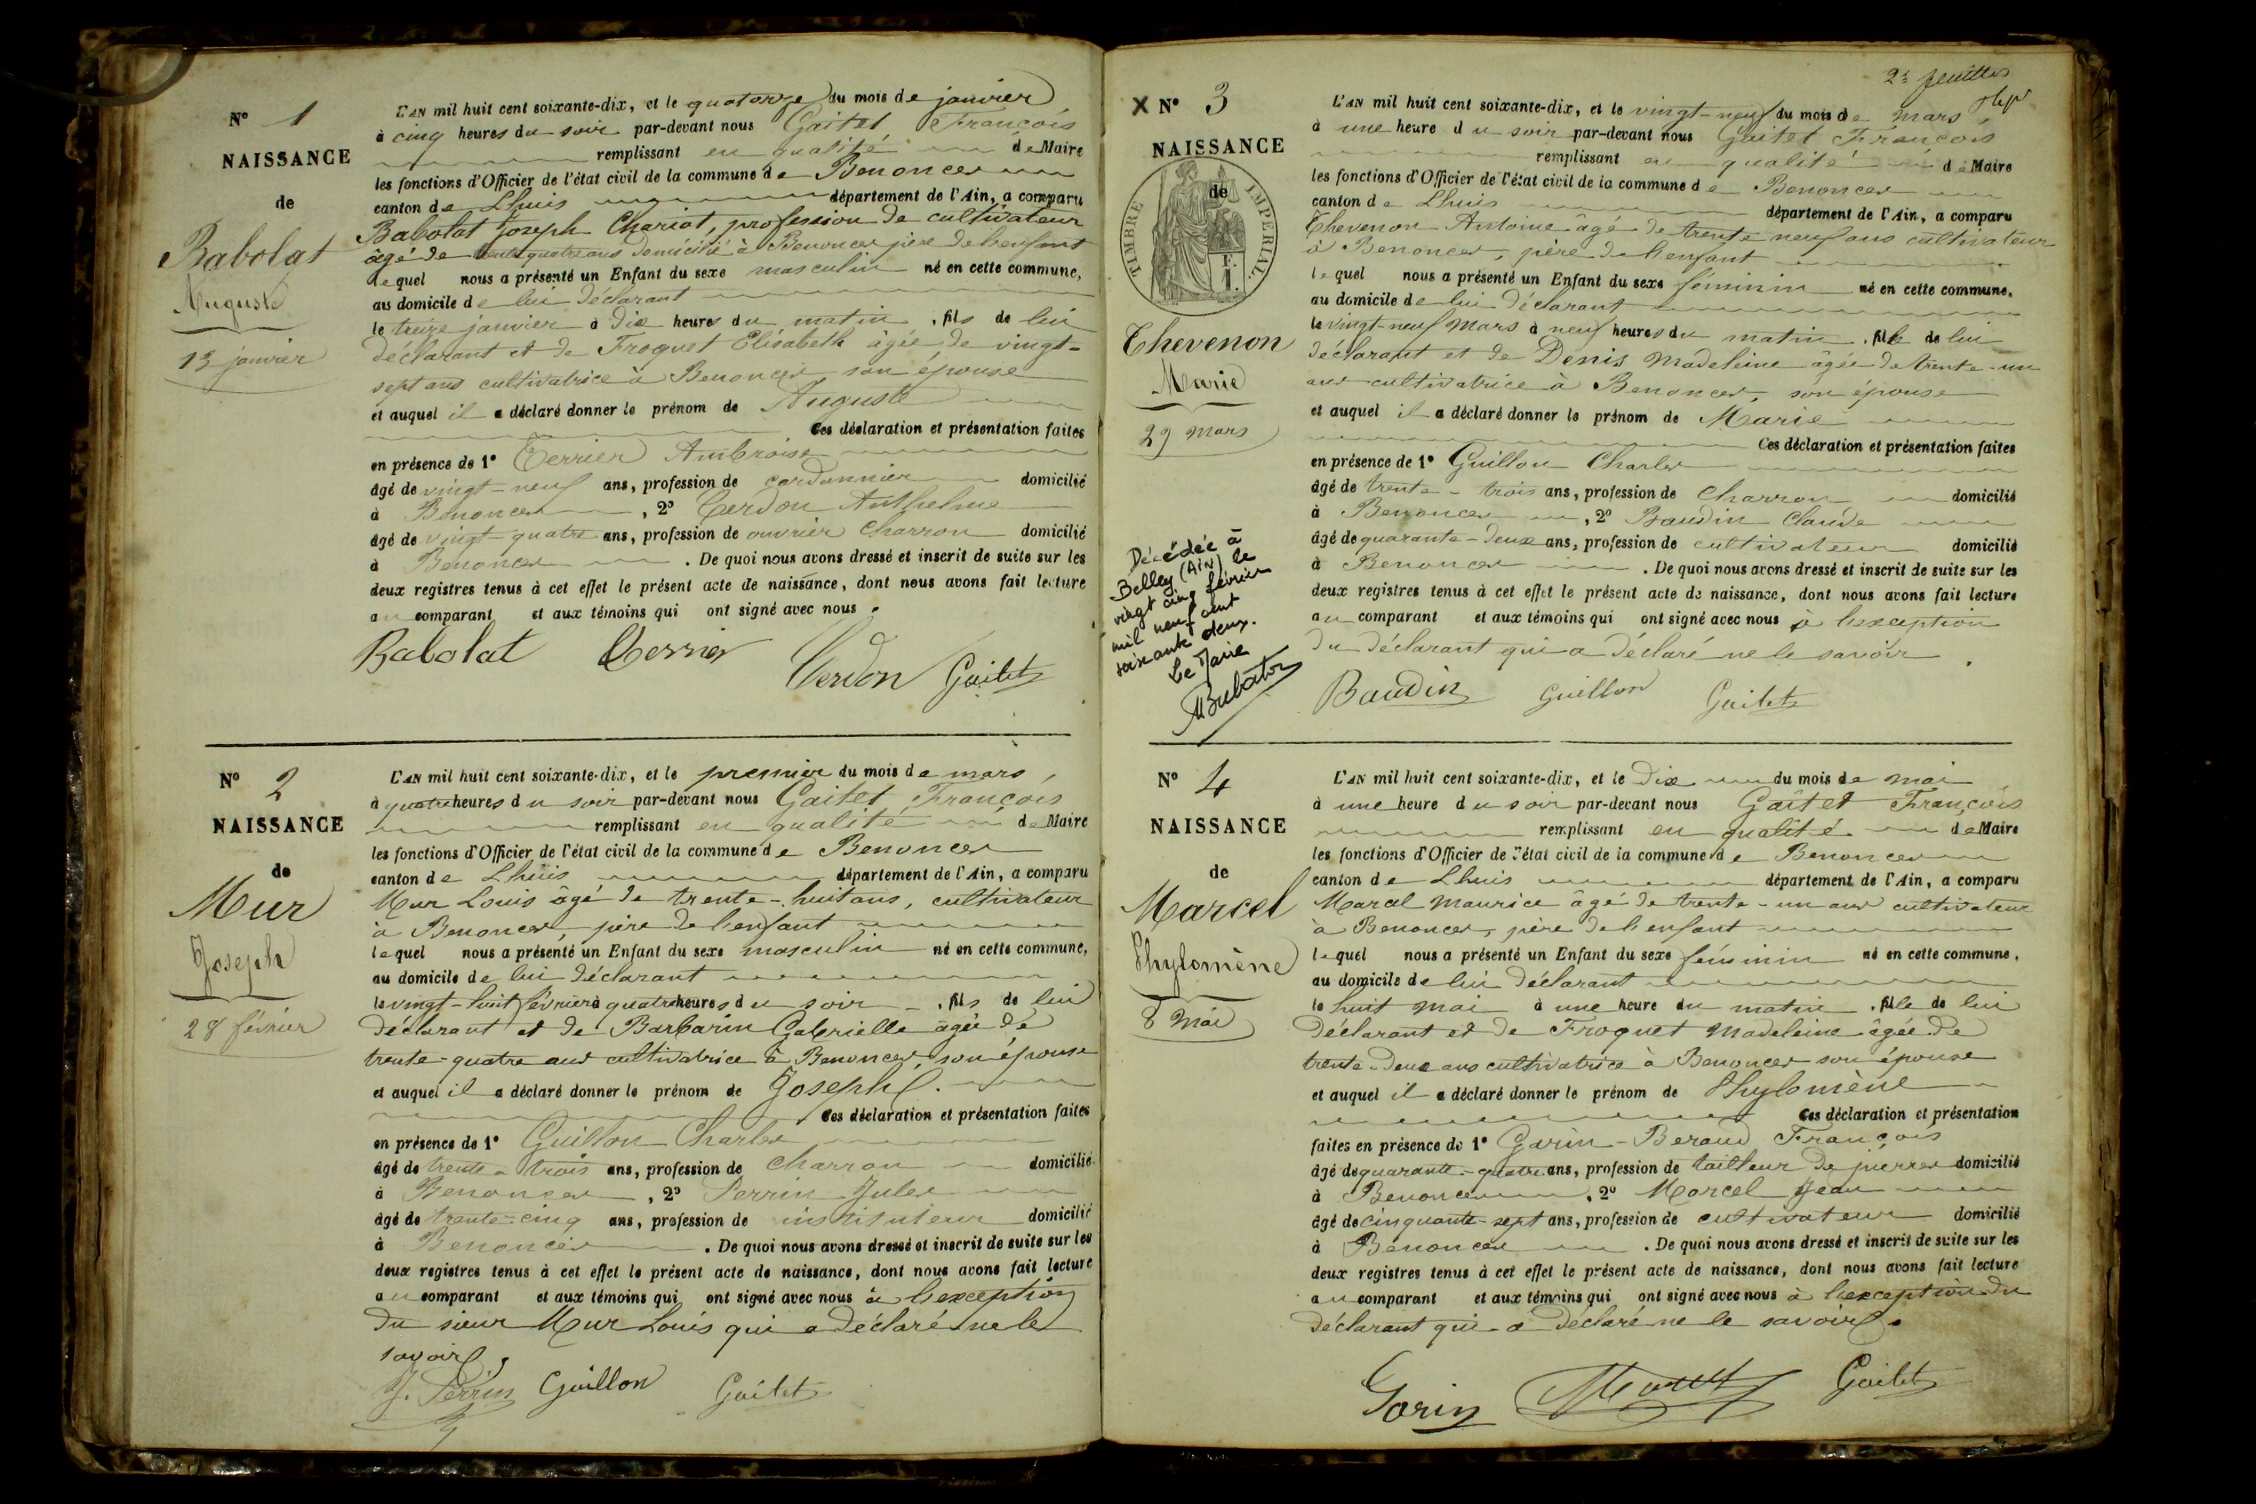 N° 1
NAISSANCE
de
Babolat
Auguste
13 janvier
L'AN mil huit cent soixante-dix, et le quatorze du mois de janvier
à cinq heures du soir par-devant nous Gaitet François
remplissant en qualité de Maire
les fonctions d'Officier de l'état civil de la commune de Benonces
canton de Lhuis département de l'Ain, a comparu
Babolat Joseph Chariot, profession de cultivateur
âgé de trente quatre ans domicilié à Benonces père de l'enfant
lequel nous a présenté un Enfant du sexe masculin né en cette commune,
au domicile de lui déclarant
le treize janvier à dix heures du matin, fils de lui
déclarant et de Froquet Elisabeth âgée de vingt-
sept ans cultivatrice à Benonces son épouse
et auquel il a déclaré donner le prénom de Auguste
Ces déclaration et présentation faites
en présence de 1° Terrier Ambroise
âgé de vingt-neuf ans, profession de cordonnier domicilié
à Benonces, 2° Cerdon Anthelme
âgé de vingt-quatre ans, profession de ouvrier charron domicilié
à Benonces. De quoi nous avons dressé et inscrit de suite sur les
deux registres tenus à cet effet le présent acte de naissance, dont nous avons fait lecture
au comparant et aux témoins qui ont signé avec nous.
Babolat Terrier Cerdon Gaitet
N° 2
NAISSANCE
de
Mur
Joseph
28 février
L'AN mil huit cent soixante-dix, et le premier du mois de mars,
à quatre heures du soir par-devant nous Gaitet François
remplissant en qualité de Maire
les fonctions d'Officier de l'état civil de la commune de Benonces
canton de Lhuis département de l'Ain, a comparu
Mur Louis âgé de trente-huit ans, cultivateur
à Benonces, père de l'enfant
lequel nous a présenté un Enfant du sexe masculin né en cette commune,
au domicile de lui déclarant
le vingt-huit février à quatre heures du soir, fils de lui
déclarant et de Barbarin Gabrielle âgée de
trente-quatre ans cultivatrice à Benonces, son épouse
et auquel il a déclaré donner le prénom de Joseph.
Ces déclaration et présentation faites
en présence de 1° Guillon Charles
âgé de trente-trois ans, profession de charron domicilié
à Benonces, 2° Perrin Jules
âgé de trente-cinq ans, profession de instituteur domicilié
à Benonces. De quoi nous avons dressé et inscrit de suite sur les
deux registres tenus à cet effet le présent acte de naissance, dont nous avons fait lecture
au comparant et aux témoins qui ont signé avec nous à l'exception
du sieur Mur Louis qui a déclaré ne le
savoir.
J. Perrin Guillon Gaitet
2e feuillet
X N° 3
NAISSANCE
de
TIMBRE IMPÉRIAL
Thevenon
Marie
29 mars
Décédée à
Belley (AIN) le
vingt cinq février
mil neuf cent
soixante deux.
Le Maire
L'AN mil huit cent soixante-dix, et le vingt-neuf du mois de mars,
à une heure du soir par-devant nous Gaitet François
remplissant en qualité de Maire
les fonctions d'Officier de l'état civil de la commune de Benonces
canton de Lhuis département de l'Ain, a comparu
Thevenon Antoine âgé de trente neuf ans cultivateur
à Benonces, père de l'enfant
lequel nous a présenté un Enfant du sexe féminin né en cette commune,
au domicile de lui déclarant
le vingt-neuf Mars à neuf heures du matin, fille de lui
déclarant et de Denis Madeleine âgée de trente-un
ans cultivatrice à Benonces, son épouse
et auquel il a déclaré donner le prénom de Marie
Ces déclaration et présentation faites
en présence de 1° Guillon Charles
âgé de trente-trois ans, profession de charron domicilié
à Benonces, 2° Baudin Claude
âgé de quarante-deux ans, profession de cultivateur domicilié
à Benonces. De quoi nous avons dressé et inscrit de suite sur les
deux registres tenus à cet effet le présent acte de naissance, dont nous avons fait lecture
au comparant et aux témoins qui ont signé avec nous à l'exception
du déclarant qui a déclaré ne le savoir.
Baudin Guillon Gaitet
N° 4
NAISSANCE
de
Marcel
Phylomène
8 Mai
L'AN mil huit cent soixante-dix, et le dix du mois de mai
à une heure du soir par-devant nous Gaitet François
remplissant en qualité de Maire
les fonctions d'Officier de l'état civil de la commune de Benonces
canton de Lhuis département de l'Ain, a comparu
Marcel Maurice âgé de trente-un ans cultivateur
à Benonces, père de l'enfant
lequel nous a présenté un Enfant du sexe féminin né en cette commune,
au domicile de lui déclarant
le huit mai à une heure du matin, fille de lui
déclarant et de Froquet Madeleine âgée de
trente-deux ans cultivatrice à Benonces son épouse
et auquel il a déclaré donner le prénom de Phylomène
Ces déclaration et présentation
faites en présence de 1° Garin-Beraud François
âgé de quarante-quatre ans, profession de tailleur de pierres domicilié
à Benonces, 2° Marcel Jean
âgé de cinquante-sept ans, profession de cultivateur domicilié
à Benonces. De quoi nous avons dressé et inscrit de suite sur les
deux registres tenus à cet effet le présent acte de naissance, dont nous avons fait lecture
au comparant et aux témoins qui ont signé avec nous à l'exception du
déclarant qui a déclaré ne le savoir.
Garin Marcel Gaitet